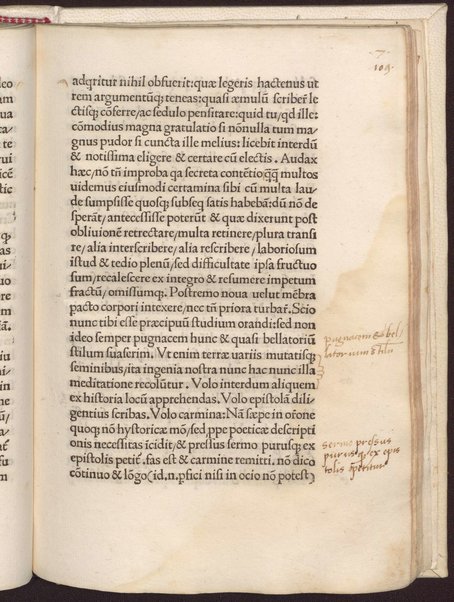 7
109.
adq̃ritur nihil obfuerit:quæ legeris hactenus ut
rem argumentũq; teneas:quasi æmulũ scriber̃ le
ctisq; cõferre/ac sedulo pensitare:quid tu/qd ille:
cõmodius magna gratulatio si nõnulla tum ma
gnus pudor si cuncta ille melius: licebit interdũ
& notissima eligere & certare cũ electis. Audax
hæc/nõ tñ improba q̃a secreta contẽtio q̃q̃ multos
uidemus eiusmodi certamina sibi cũ multa lau/
de sumpsisse quosq; subseq̃ satis habebãt:dũ nõ de
sperãt/antecessisse poterũt & quæ dixerunt post
obliuionẽ retrectare/multa retinere/plura transi
re/alia interscribere/alia rescribere/laboriosum
istud & tedio plenũ/sed difficultate ip̃sa fructuo
sum/recalescere ex integro & resumere impetum
fractũ/omissumq;. Postremo noua uelut mẽbra
pacto corpori intexere/nec tñ priora turbar̃.Scio
nunc tibi esse præcipuũ studium orandi:sed non
ideo semper pugnacem hunc & quasi bellatoriũ
stilum suaserim. Vt enim terræ uariis mutatisq;
seminibus/ita ingenia nostra nunc hac nunc illa
meditatione recolũtur. Volo interdum aliquem
ex historia locũ apprehendas. Volo epistolã dili
gentius scribas. Volo carmina: Nã sæpe in oröne
quoq; nõ hystoricæ mõ/sed ppe poeticæ descripti
onis necessitas icidit/& pressus sermo purusq; ex
epistolis petit̃. fas est & carmine remitti. nõ dico
cõtinuo & lõgo(id.n.pfici nisi in ocio nõ potest)
pugnacem & bel/
latorium stilũ
sermo pressus
purus q; ex epis
tolis petitur